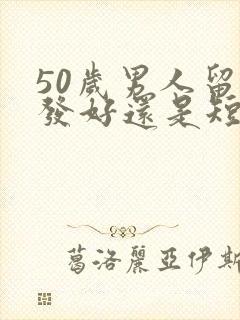 50歲男人留
發好還是短
葛洛麗亞伊斯